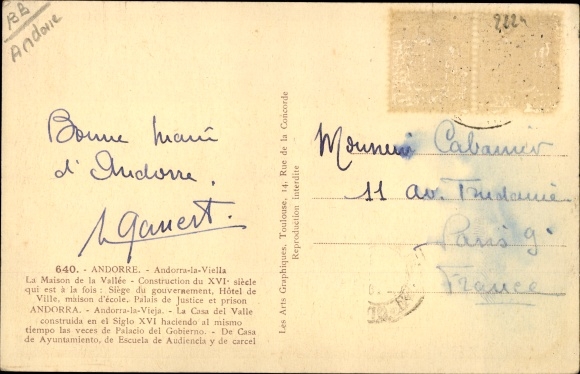 BB
Andore
2224
Bonne
d'Andorre.
Monsieur
11 av.
Paris 9e
France
640. - ANDORRE. - Andorra-la-Viella
La Maison de la Vallée - Construction du XVIe siècle
qui est à la fois : Siège du gouvernement, Hôtel de
Ville, maison d'école. Palais de Justice et prison
ANDORRA. - Andorra-la-Vieja. - La Casa del Valle
construida en el Siglo XVI haciendo al mismo
tiempo las veces de Palacio del Gobierno. - De Casa
de Ayuntamiento, de Escuela de Audiencia y de carcel
Les Arts Graphiques, Toulouse, 14, Rue de la Concorde
Reproduction interdite